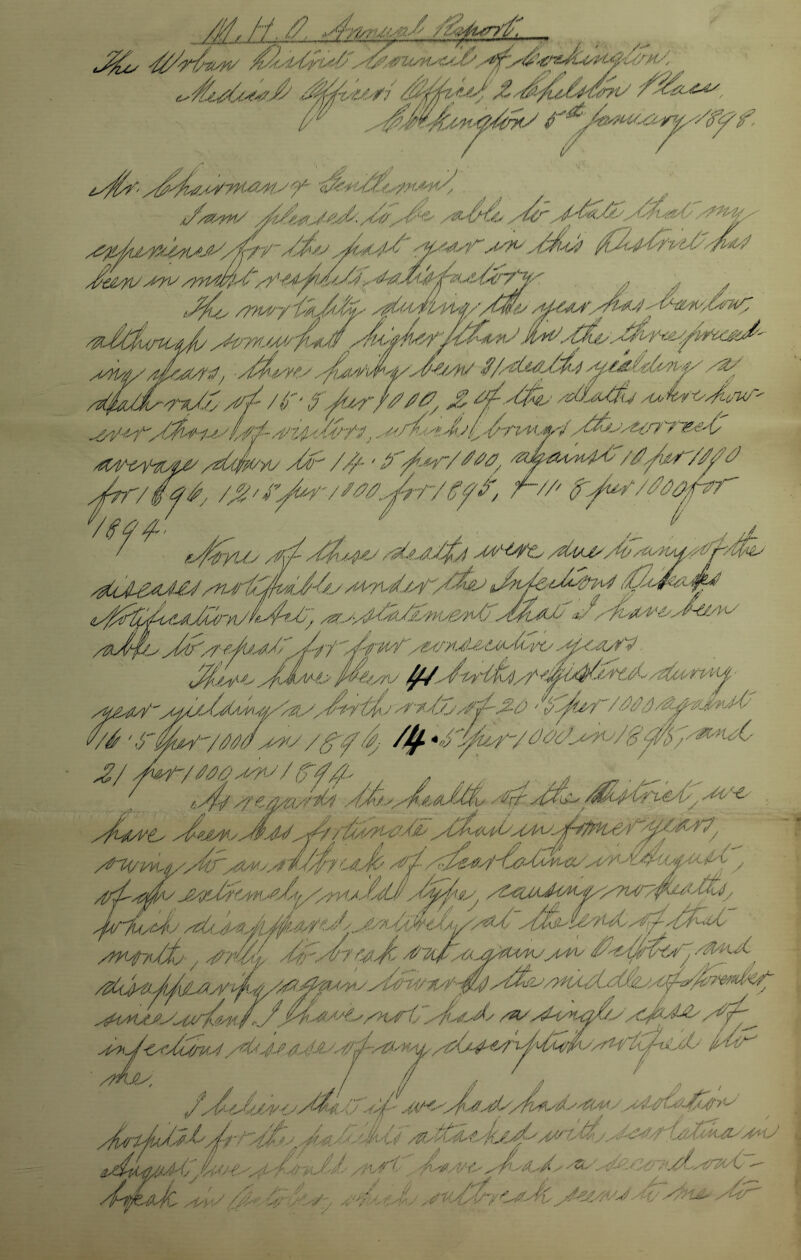 M. H. O. Annual Report.
The Urban District Council of Cockington.
Medical Officers Office, 2 Chelston Place,
Cockington 5th January 1898.
Mr. Chairman & Gentlemen,
I am pleased to be able to state that my
experience for the past year in this District has
been in most respects satisfactory
The mortality during the year has been low,
although somewhat higher than in the three preced-
ing years, there having been 31 deaths yealding a
death-rate of 15.5 per 1000, 2 of the deaths were how-
ever those of visitors, which brings the correct
average down to 14.5 per 1000, against 10 per 1000
for 1896, 12.5 per 1000 for 1895, & 11.8 per 1000 for
1894.
None of these deaths were due to any of the
diseases notifiable under the Infectious Diseases
Notification Act, a statement that I have been
able to repeat for four consecutive years
There have been 41 births registered during
year yielding a birth rate of 20.5 per 1000 against
16.5 per 1000 in 1896, 14.5 per 1000 in 1895, and
21 per 1000 in 1894.
As regards the health of the District, we
have been less fortunate than in former years,
owing to an outbreak of Scarlatina in August,
of an extremely mild type, causing no deaths,
which disappeared entirely at the end of that
month, only to break out again in October, and
disappearing again towards the middle of November,
since when I have not had a single case of
infectious disease of any description notified to
me.
I believe that if we had had an isolation
hospital for the patients attacked with scarlatina in
August, we should not have had a second out-
break in October, which outbreak seems to me to